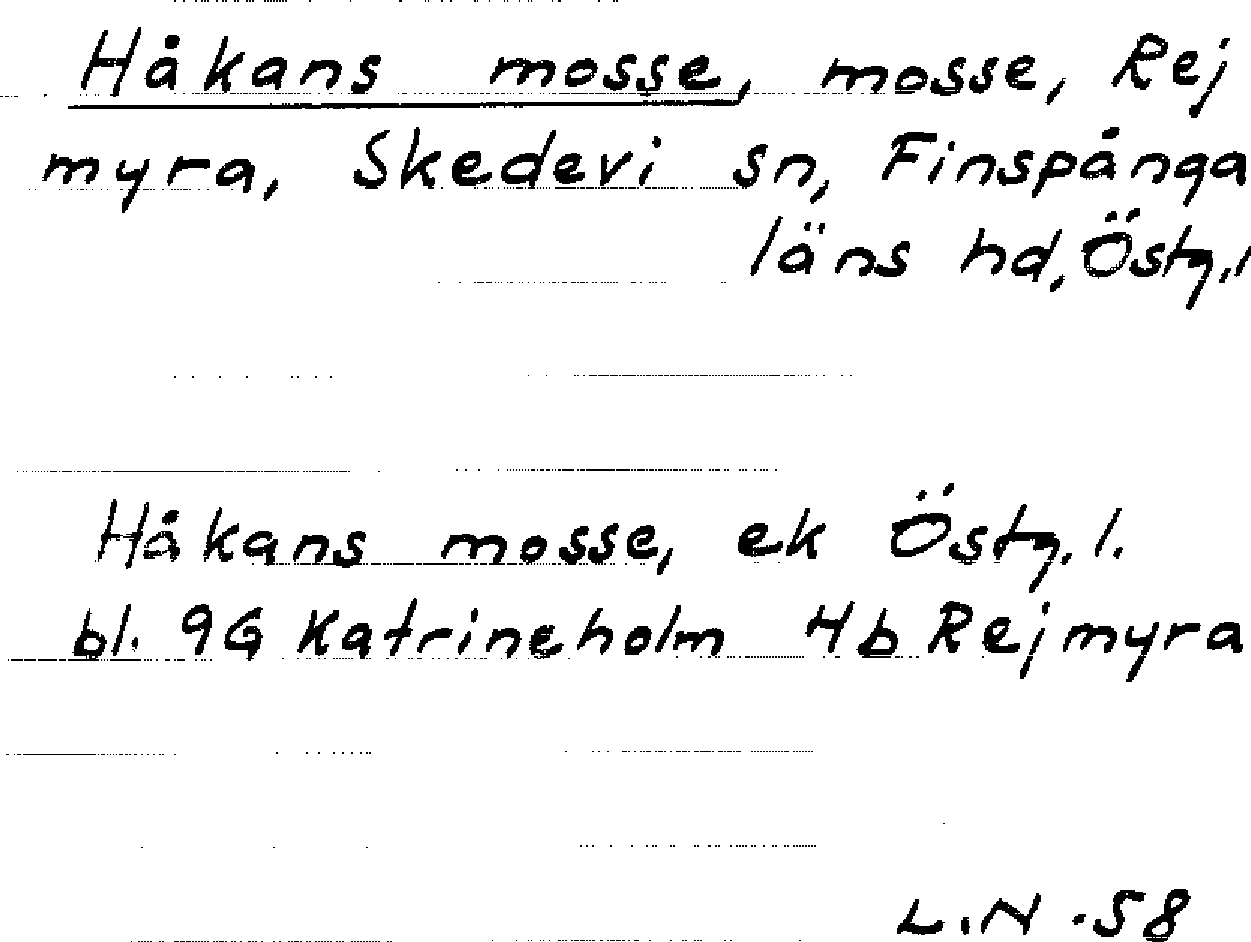 Håkans mosse, mosse, Rej
myra, Skedevi sn, Finspånga
läns hd, Östg.l
Håkans mosse, ek Östg. l.
bl. 9G Katrineholm 4b Rejmyra
L.N. -58